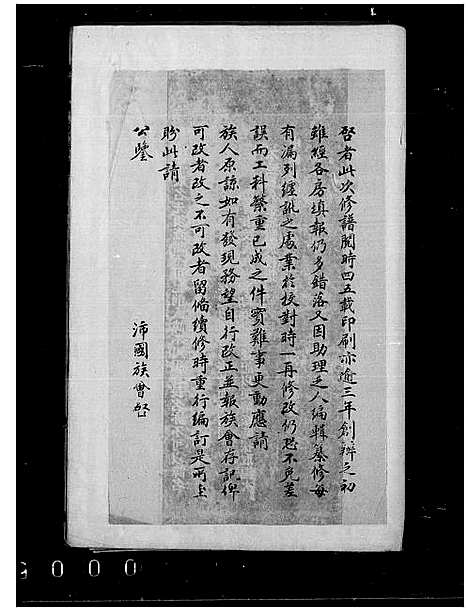 啓者此次修譜閱時四五載印刷亦逾三年創辦之初
雖經各房填報仍多錯落又因助理乏人編輯纂修每
有漏列纏訛之處業於校對時一再修改仍恐不免差
誤而工科繁重已成之件實難事更動應請
族人原諒如有發現務望自行改正並報族會存記俾
可改者改之不可改者留備續修時重行編訂是所至
盼此請
公鑒
沛國族會啓
000